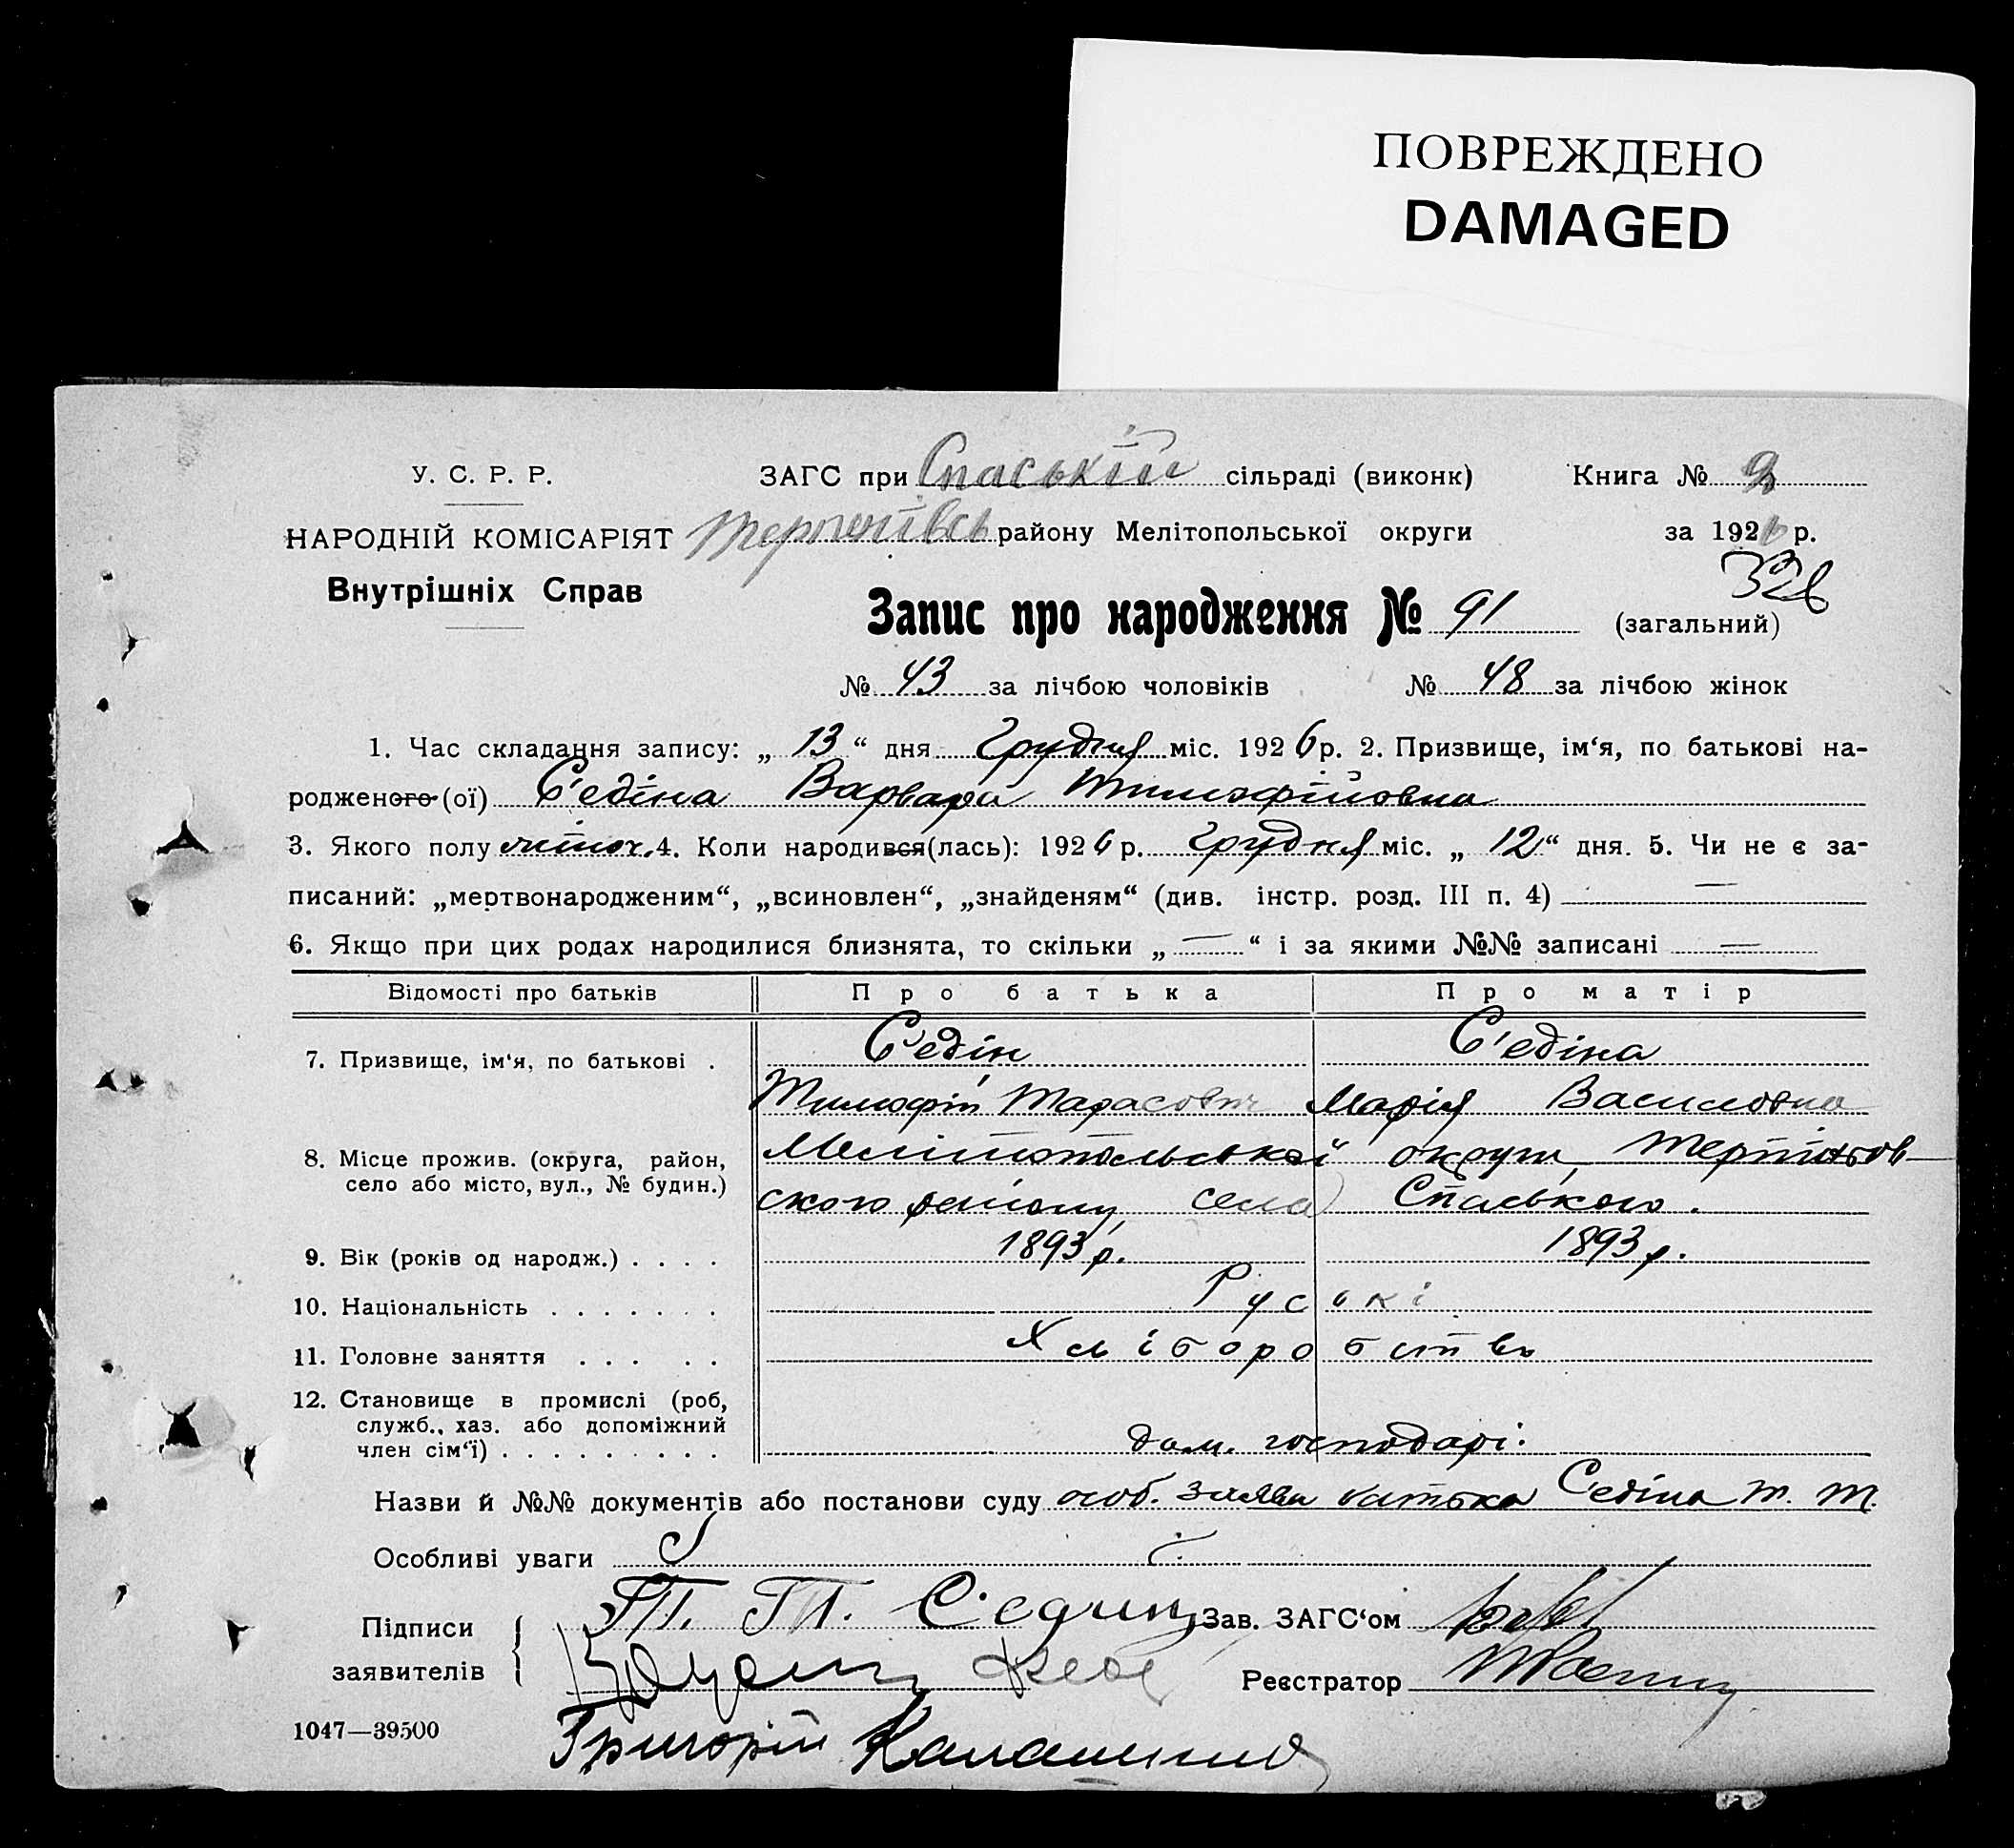 ПОВРЕЖДЕНО
DAMAGED
У. С. Р. Р.
НАРОДНІЙ КОМІСАРІЯТ
Внутрішніх Справ
ЗАГС при Спаській сільраді (виконк)
Книга № 2
району Мелітопольської округи
за 1926 р.
326
Запис про народження № 91 (загальний)
№ 43 за лічбою чоловіків № 48 за лічбою жінок
1. Час складання запису: „ 13 “ дня Грудня міс. 1926 р. 2. Призвище, ім‘я, по батькові на-
родженого (ої) Є'едіна Варвара Тимофійовна
3. Якого полу жіноч. 4. Коли народився(лась): 1926 р. Грудня міс. „ 12 “ дня. 5. Чи не є за-
писаний: „мертвонародженим“, „всиновлен“, „знайденям“ (див. інстр. розд. III п. 4) —
6. Якщо при цих родах народилися близнята, то скільки „ — “ і за якими №№ записані —
Відомості про батьків Про батька Про матір
7. Призвище, ім‘я, по батькові . Є'едін Є'едіна
Тимофій Тарасович Марія Василовна
8. Місце прожив. (округа, район, село або місто, вул., № будин.) Мелітопольської округи,
ского району села Спаського.
9. Вік (років од народж.) . . . . 1893 р. 1893 р.
10. Національність . . . . . . . Руські
11. Головне заняття . . . . . Хліборобств
12. Становище в промислі (роб,
служб., хаз. або допоміжний
член сім‘ї) . . . . . . . . . дом. господарі.
Назви й №№ документів або постанови суду особ. заява батька Седіна Т. Т.
Особливі уваги
Підписи
заявителів
Т. Т. Седин
Зав. ЗАГС‘ом
Реєстратор
1047—39500
Григорій Калашник